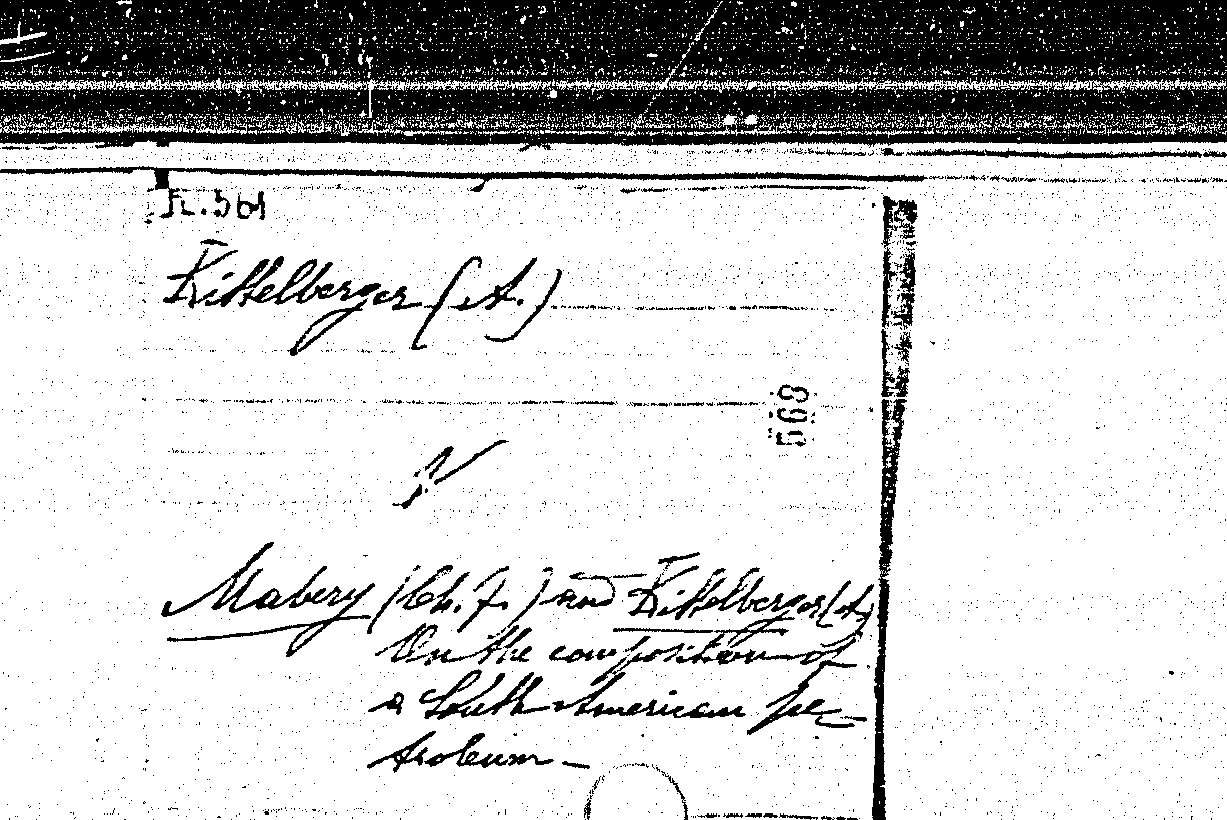 Kittelberger (A.)
568
Mabery (Ch. F.) and Kittelberger (A.)
On the composition of
a South American pe-
troleum -